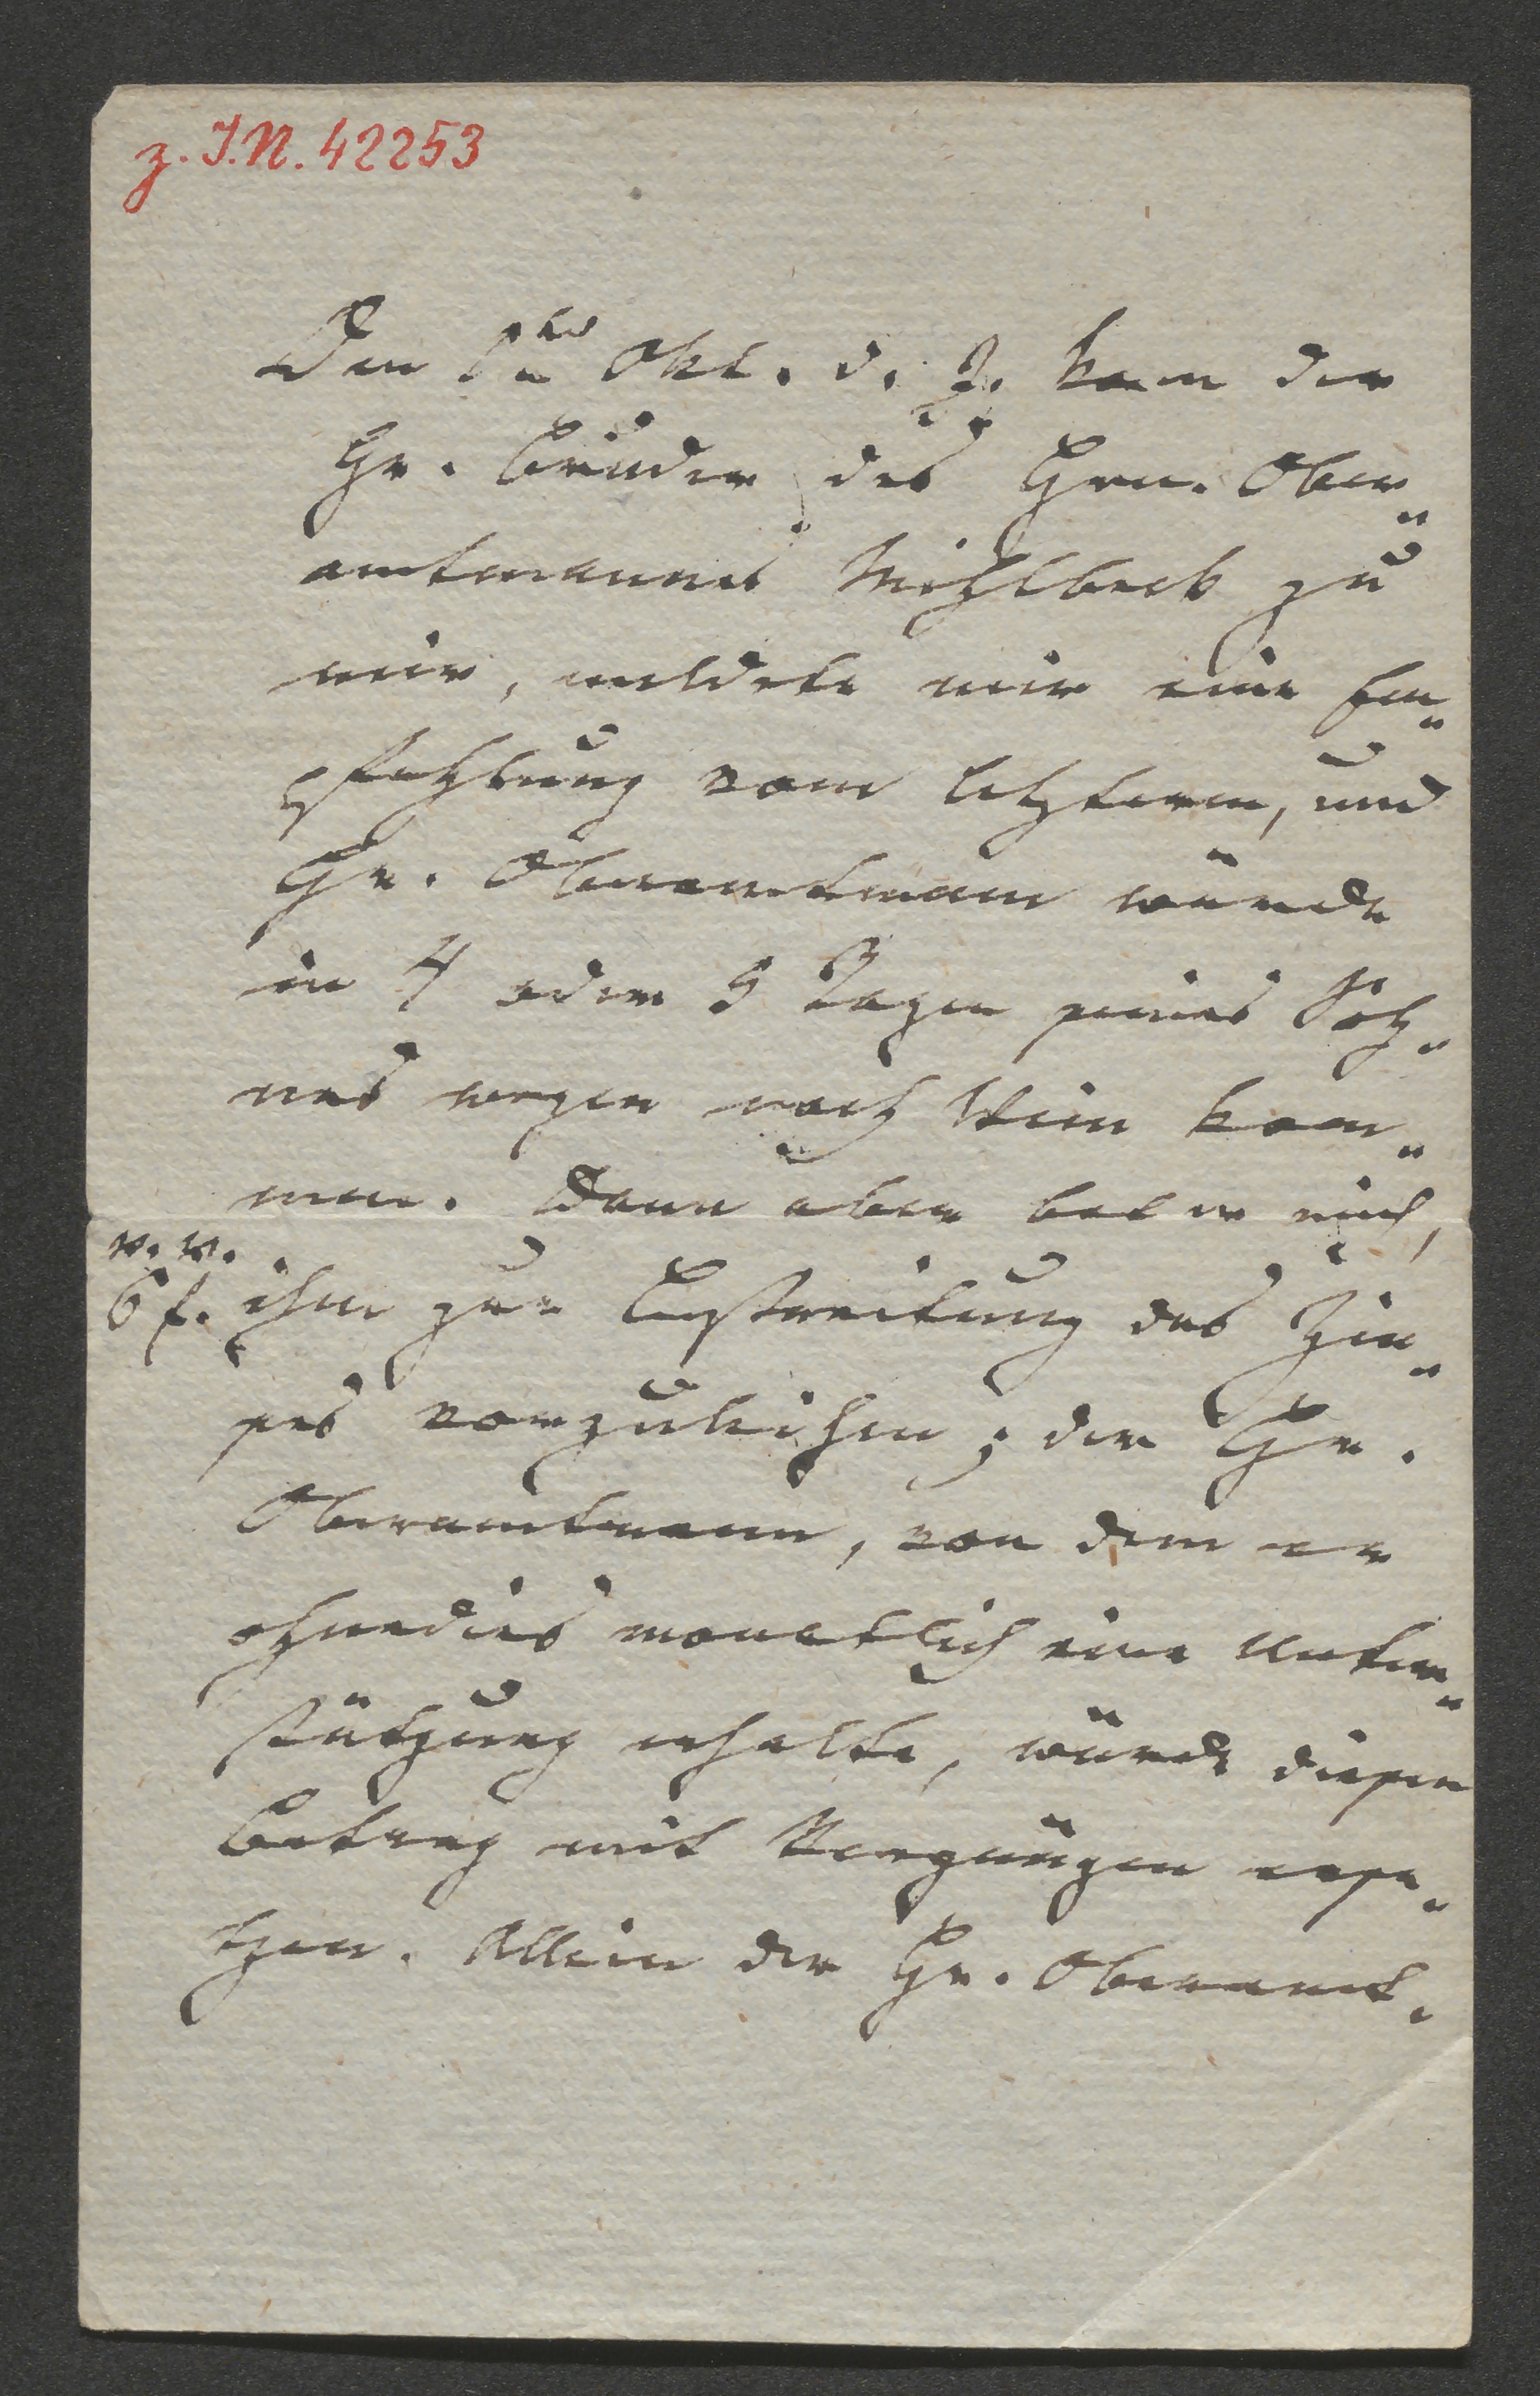 z. I.N. 42253
Den 1ten Okt. d. J. kam der
Hr. Bruder des Hrn. Ober„
amtmannes Mihlbeck zu
mir, meldete mir eine Em„
pfehlung vom letztern, und
Hr. Oberamtmann würde
in 4 oder 5 Tagen seines Soh„
nes wegen nach Wien kom„
men. Dann aber bat er mich,
w. w.
6 f. ihm zur Bestreitung des Zin„
ses vorzuleihen; der Hr.
Oberamtmann, von dem er
ohnedies monatlich eine Unter„
stützung erhalte, würde diesen
Betrag mit Vergnügen erse„
tzen. Allein der Hr. Oberamt„